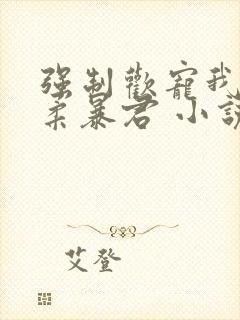 强制歡寵我
柔暴君 小說
艾登